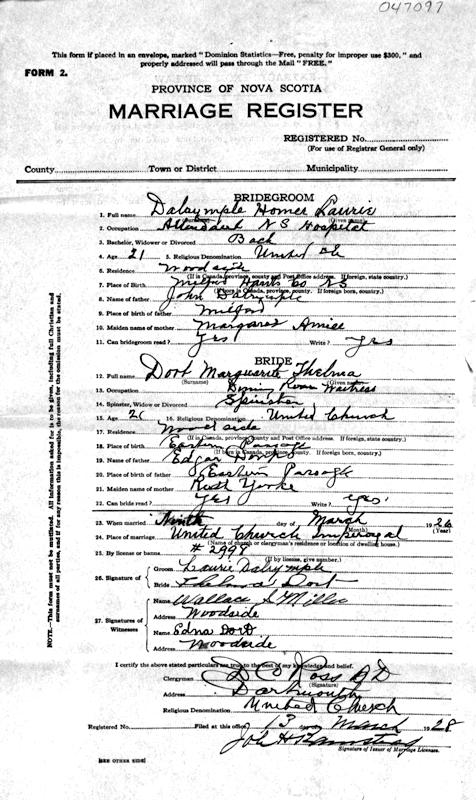 047097
This form if placed in an envelope, marked "Dominion Statistics—Free, penalty for improper use $300," and
properly addressed will pass through the Mail "FREE."
FORM 2.
PROVINCE OF NOVA SCOTIA
MARRIAGE REGISTER
REGISTERED No.
(For use of Registrar General only)
County Town or District Municipality
BRIDEGROOM
1. Full name Dalrymple Homer Laurie
(Given name)
2. Occupation Attendant N S Hospital
3. Bachelor, Widower or Divorced Bach
4. Age 21 5. Religious Denomination United Ch
6. Residence Woodside
(If in Canada, province, county and Post Office address. If foreign, state country.)
7. Place of Birth Milford Hants Co NS
(If born in Canada, province, county. If foreign born, country.)
8. Name of father John Dalrymple
9. Place of birth of father Milford
10. Maiden name of mother Margaret
11. Can bridegroom read? Yes Write? Yes
BRIDE
12. Full name Dort Marguerite Thelma
(Surname) (Given name)
13. Occupation Dining Room Waitress
14. Spinster, Widow or Divorced Spinster
15. Age 16. Religious Denomination United Church
17. Residence Woodside
(If in Canada, province, county and Post Office address. If foreign, state country.)
18. Place of birth Eastern Passage
(If born in Canada, province, county. If foreign born, country.)
19. Name of father Edgar Dort
20. Place of birth of father Eastern Passage
21. Maiden name of mother Ruth Yorke
22. Can bride read? Yes Write? Yes
23. When married Ninth day of March 192
(Month) (Year)
24. Place of marriage United Church Imperoyal
(Name of church or clergyman's residence or location of dwelling house.)
25. By license or banns # 2998
(If by license, give number.)
26. Signature of Groom Laurie Dalrymple
Bride Thelma Dort
27. Signatures of Witnesses
Name Wallace S Miller
Address Woodside
Name Edna Dort
Address Woodside
I certify the above stated particulars are true to the best of my knowledge and belief.
Clergyman Ross
(Signature)
Address Dartmouth
Religious Denomination United Church
Registered No. Filed at this office 13 March 1928
Signature of Issuer of Marriage Licenses.
[SEE OTHER SIDE]
NOTE.—This form must not be mutilated. All information asked for is to be given, including full Christian and
surnames of all parties, and if for any reason this is impossible, the reason for the omission must be stated.